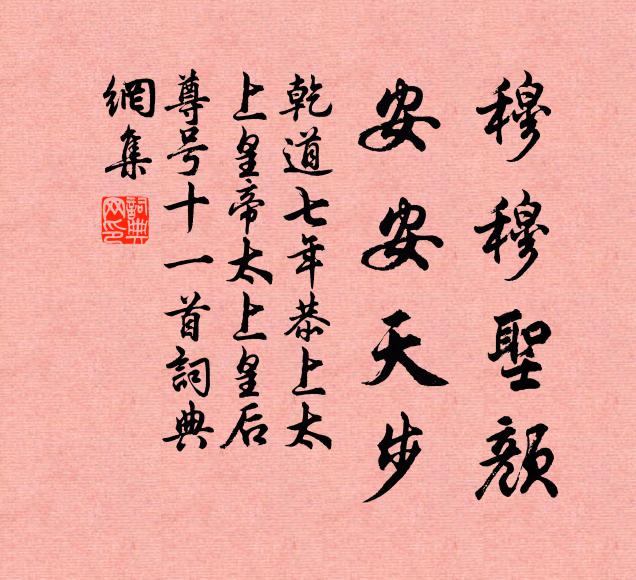 穆穆聖顏
安安天步
乾道七年恭上太
上皇帝太上皇后
尊号十一首詞典
網集
詞典
网印